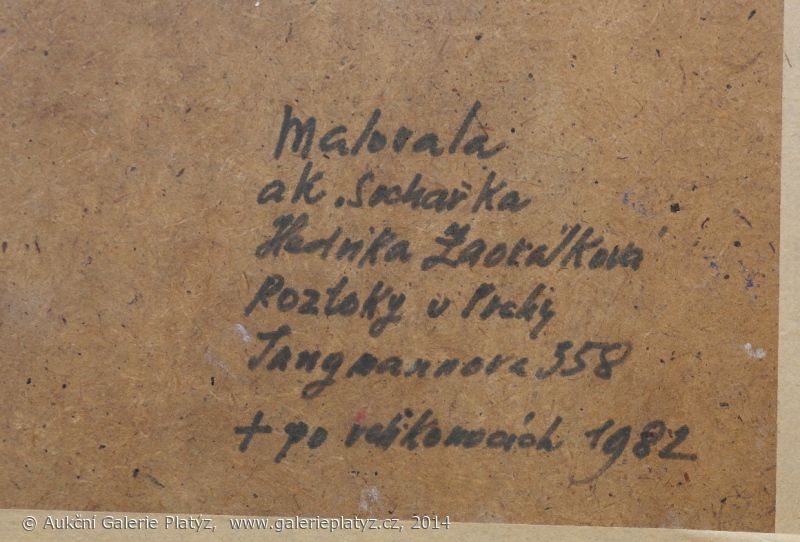 Malovala
ak. Sochařka
Hedvika Zaorálková
Roztoky u Prahy
Jungmannova 358
+ po velikonocích 1982
© Aukční Galerie Platýz, www.galerieplatyz.cz, 2014